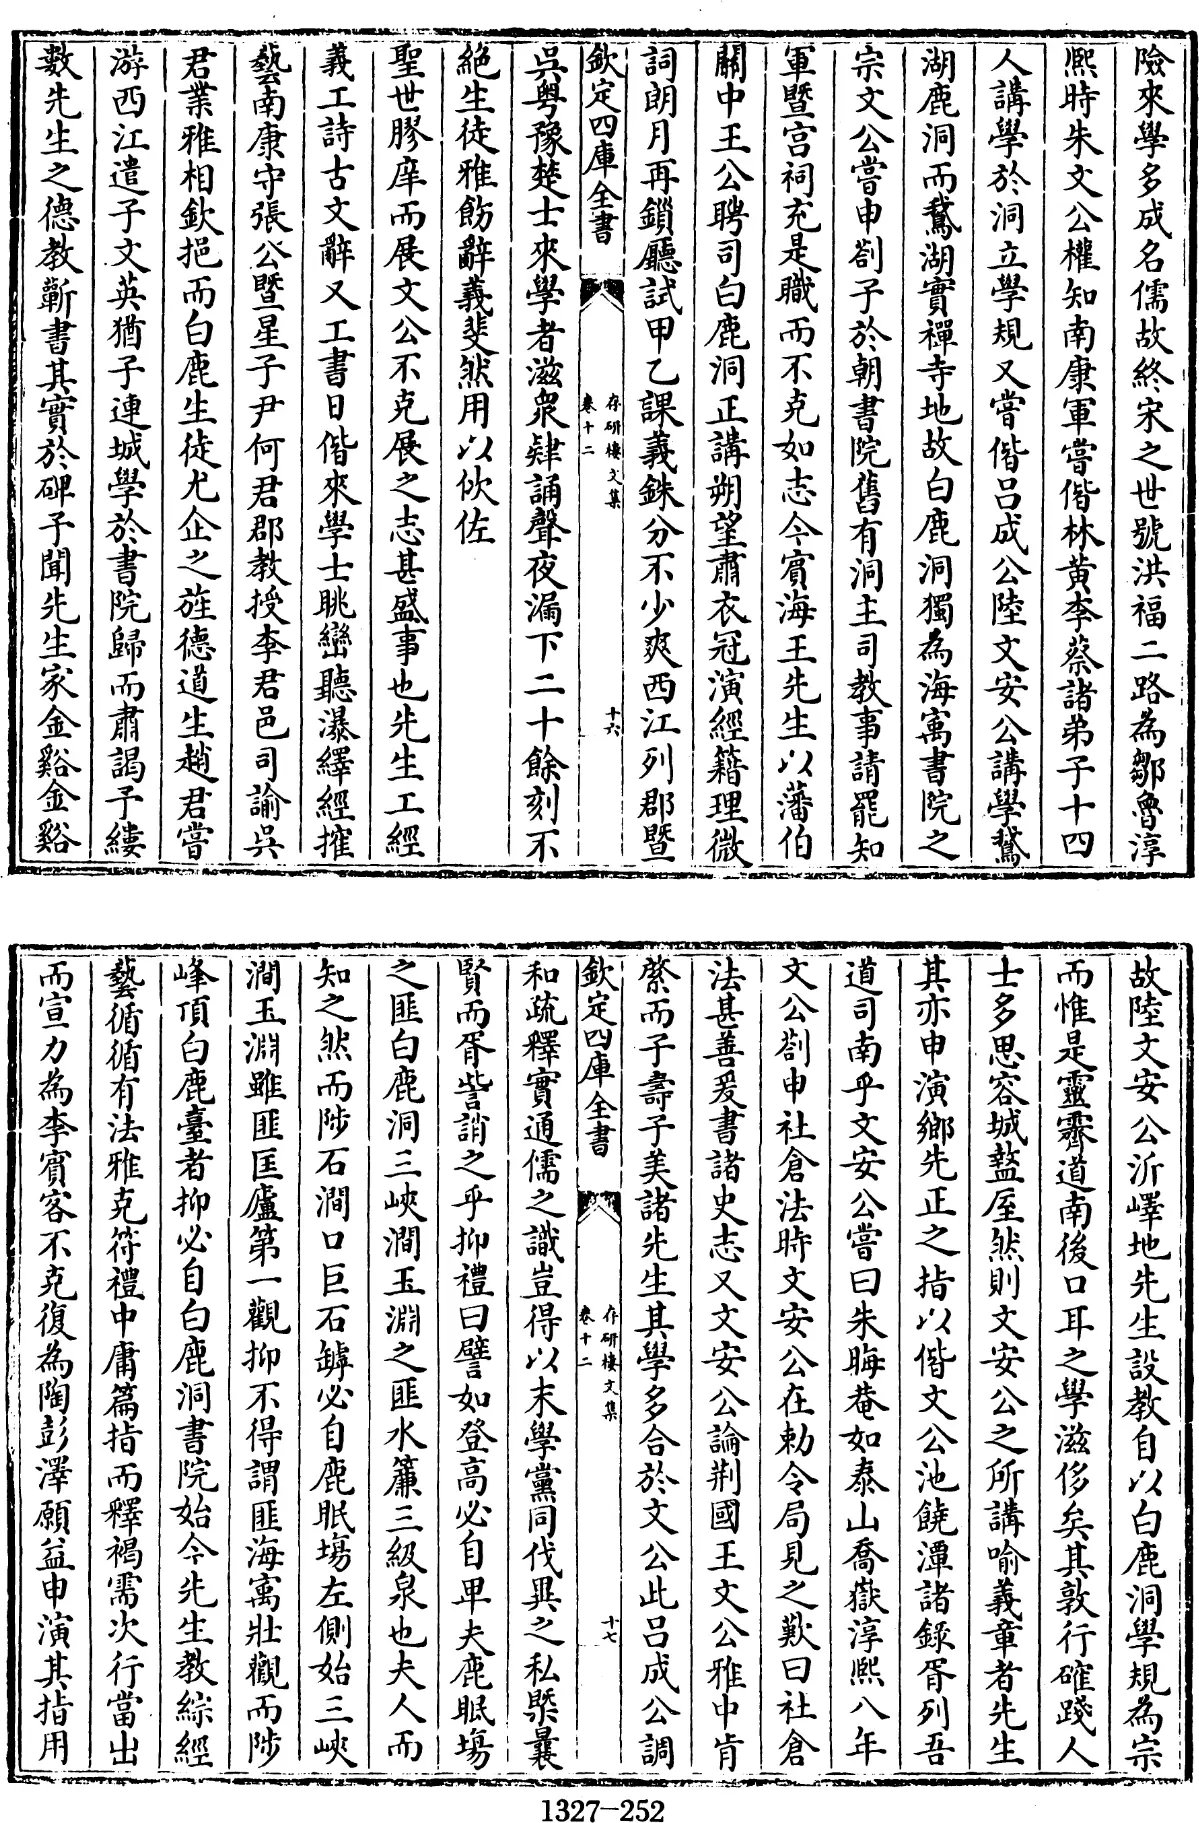 險來學多成名儒故終宋之世號洪福二路為鄒魯淳
熈時朱文公權知南康軍嘗偕林黄李蔡諸弟子十四
人講學於洞立學規又嘗偕吕成公陸文安公講學鵞
湖鹿洞而鵞湖實禪寺地故白鹿洞獨為海寓書院之
宗文公嘗申劄子於朝書院舊有洞主司教事請罷知
軍暨宫祠充是職而不克如志今賔海王先生以藩伯
關中王公聘司白鹿洞正講朔望肅衣冠演經籍理微
詞朗月再鎖廳試甲乙課義銖分不少爽西江列郡暨
欽定四庫全書
存研樓文集
卷十二
十六
吳粤豫楚士來學者滋衆肄誦聲夜漏下二十餘刻不
絶生徒雅飭辭義斐然用以佽佐
聖世膠庠而展文公不克展之志甚盛事也先生工經
義工詩古文辭又工書日偕來學士眺巒聽瀑繹經搉
藝南康守張公暨星子尹何君郡教授李君邑司諭吳
君業雅相欽挹而白鹿生徒尤企之旌德道生趙君嘗
游西江遣子文英猶子連城學於書院歸而肅謁予縷
數先生之德教蘄書其實於碑予聞先生家金谿金谿
故陸文安公沂嶧地先生設教自以白鹿洞學規為宗
而惟是靈霽道南後口耳之學滋侈矣其敦行確踐人
士多思容城盩厔然則文安公之所講喻義章者先生
其亦申演鄉先正之指以偕文公池饒潭諸録胥列吾
道司南乎文安公嘗曰朱晦菴如泰山喬嶽淳熈八年
文公劄申社倉法時文安公在勅令局見之歎曰社倉
法甚善爰書諸史志又文安公論荆國王文公雅中肯
綮而子壽子美諸先生其學多合於文公此吕成公調
欽定四庫全書
存研樓文集
卷十二
十七
和疏釋實通儒之識豈得以末學黨同伐異之私槩曩
賢而胥訾誚之乎抑禮曰譬如登高必自卑夫鹿眠塲
之匪白鹿洞三峽澗玉淵之匪水簾三級泉也夫人而
知之然而陟石澗口巨石罅必自鹿眠塲左側始三峽
澗玉淵雖匪匡廬第一觀抑不得謂匪海寓壯觀而陟
峰頂白鹿臺者抑必自白鹿洞書院始今先生教綜經
藝循循有法雅克符禮中庸篇指而釋褐需次行當出
而宣力為李賔客不克復為陶彭澤願益申演其指用
1327-252